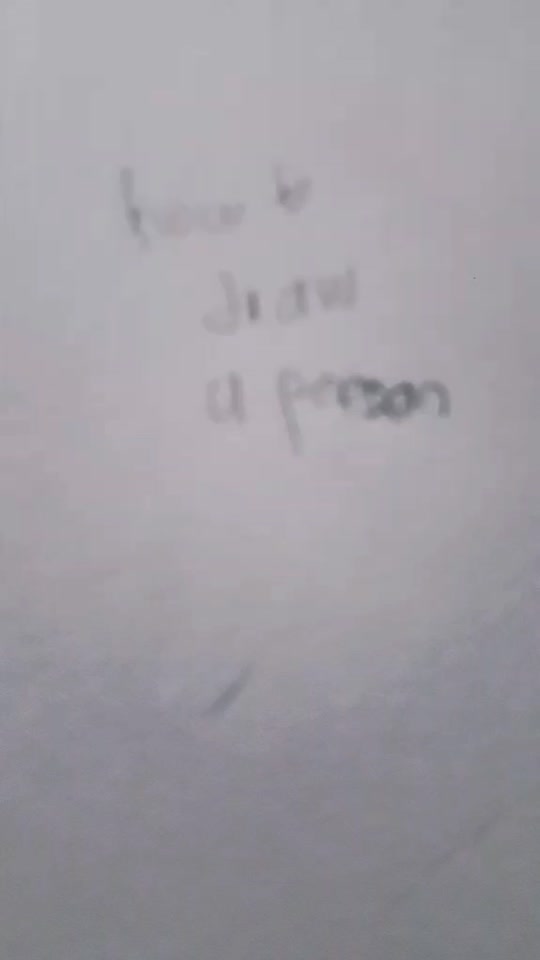 how to
draw
a person